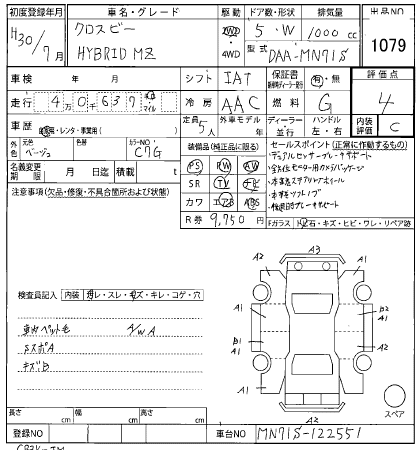 初度登録年月
車名・グレード
駆動
ドア数・形状
排気量
出品NO
H30/7月
クロスビー
HYBRID MZ
2WD
4WD
5・W
1000 cc
型式
DAA-MN71S
1079
車検 年 月
シフト
IAT
保証書
有・無
評価点
4
走行
4万0千637
マイル
冷房
AAC
燃料
G
車歴
自家用・レンタ・事業用( )
定員
5人
外車モデル
年
ディーラー
並行
ハンドル
左・右
内装評価
C
外色
元色
ベージュ
色替
カラーNO
C7G
装備品(純正品に限る)
セールスポイント(正常に作動するもの)
名義変更期限 月 日迄
積載 t
PS PW AW
・デュアルセンサーブレーキサポート
注意事項(欠品・修復・不具合箇所および状態)
SR TV
・全方位モニター用カメラパッケージ
カワ エアB ABS
R券 9,750円
Fガラス
石・キズ・ヒビ・ワレ・リペア跡
A3
A1
A1
検査員記入
内装
ヨゴレ・スレ・キズ・キレ・コゲ・穴
A1
B2
A1
車内ペット毛
A/W A
B1
A1
A2
SスポA
キズB
A1
A2
A2
スペア
長さ cm
幅 cm
高さ cm
登録NO
車台NO
MN71S-122551